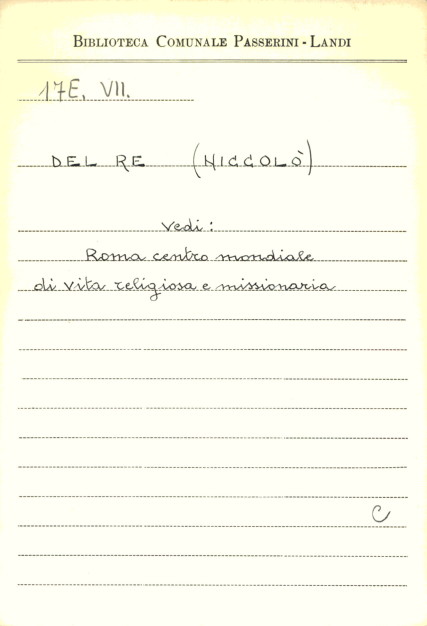 BIBLIOTECA COMUNALE PASSERINI - LANDI
17E. VII.
DEL RE (NICCOLÒ)
Vedi:
Roma centro mondiale
di vita religiosa e missionaria
C